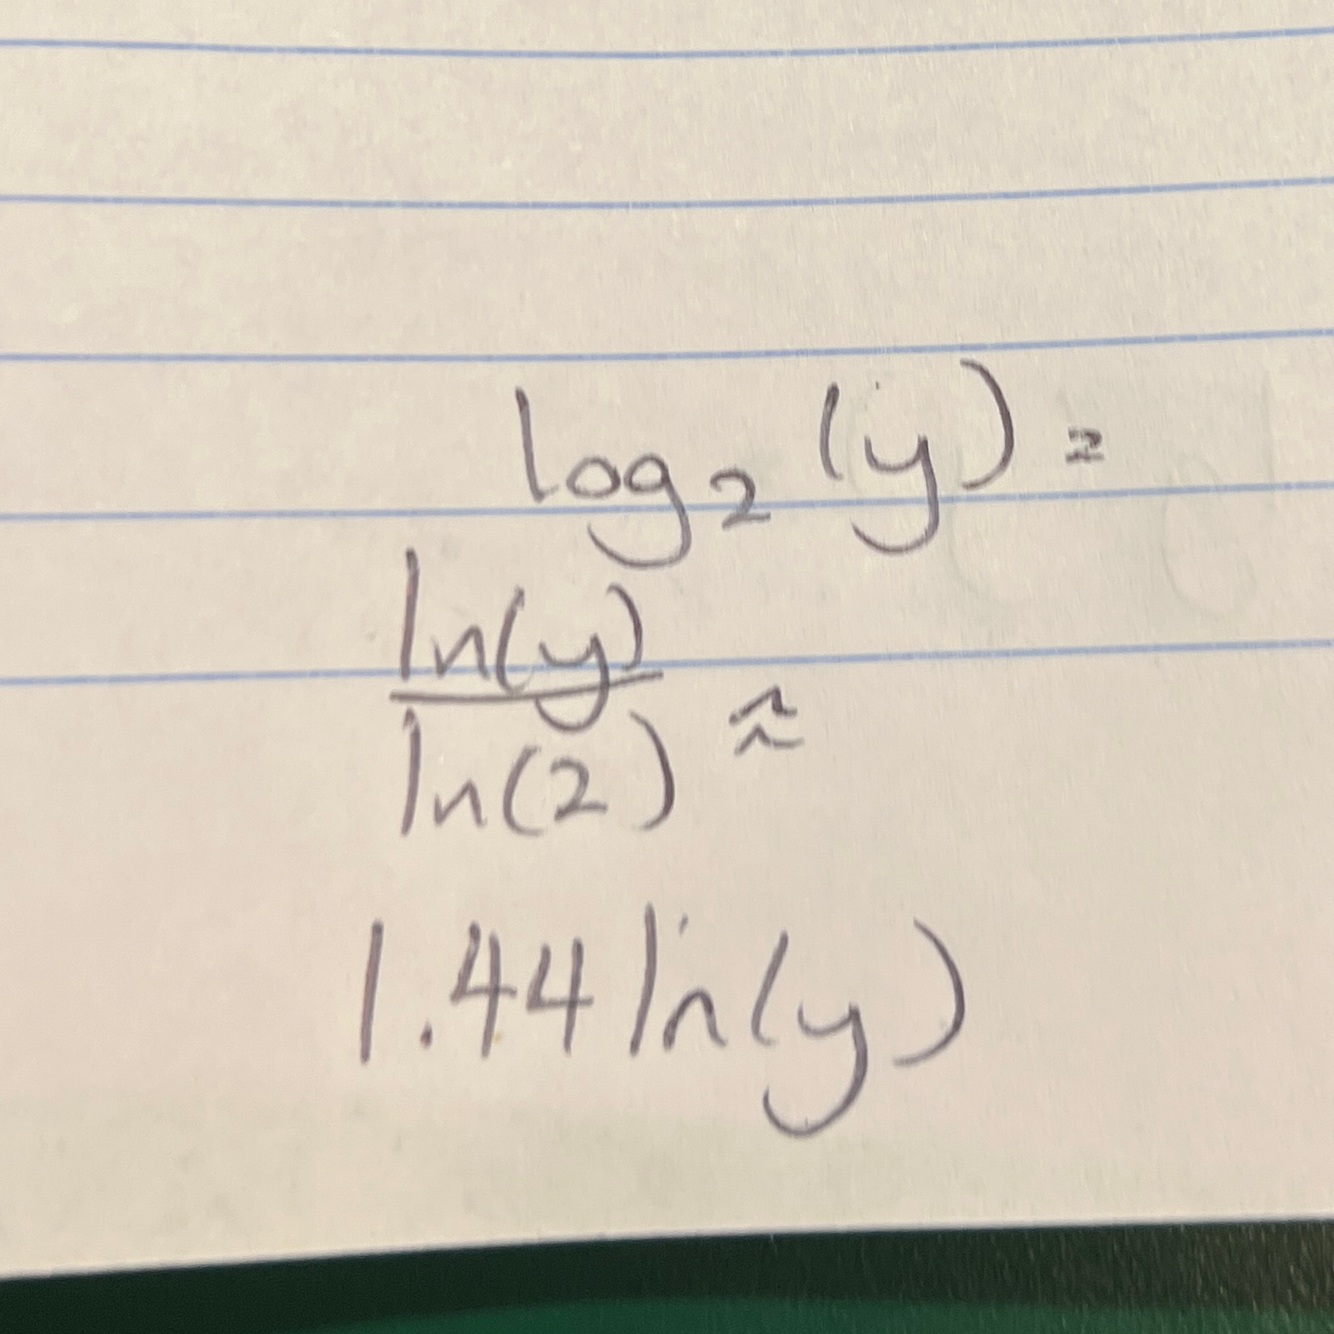 log₂(y) =
ln(y)/ln(2) ≈
1.44 ln(y)